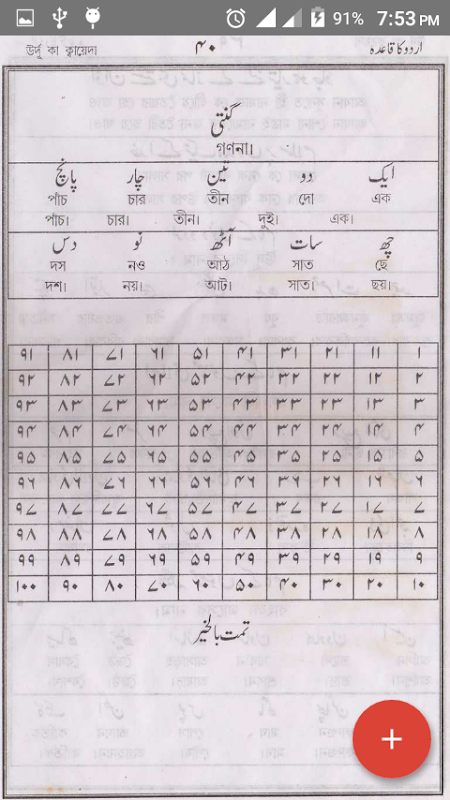 91% 7:53 PM
উর্দূ কা ক্বায়েদা ۴۰ اردو کا قاعدہ
گنتی
গণনা।
ایک دو تین چار پانچ
পাঁচ চার তীন দো এক
পাচ। চার। তীন। দুই। এক।
چھ سات آٹھ نو دس
দস নও আঠ সাত ছে
দশ। নয়। আট। সাত। ছয়।
۱ ۱۱ ۲۱ ۳۱ ۴۱ ۵۱ ۶۱ ۷۱ ۸۱ ۹۱
۲ ۱۲ ۲۲ ۳۲ ۴۲ ۵۲ ۶۲ ۷۲ ۸۲ ۹۲
۳ ۱۳ ۲۳ ۳۳ ۴۳ ۵۳ ۶۳ ۷۳ ۸۳ ۹۳
۴ ۱۴ ۲۴ ۳۴ ۴۴ ۵۴ ۶۴ ۷۴ ۸۴ ۹۴
۵ ۱۵ ۲۵ ۳۵ ۴۵ ۵۵ ۶۵ ۷۵ ۸۵ ۹۵
۶ ۱۶ ۲۶ ۳۶ ۴۶ ۵۶ ۶۶ ۷۶ ۸۶ ۹۶
۷ ۱۷ ۲۷ ۳۷ ۴۷ ۵۷ ۶۷ ۷۷ ۸۷ ۹۷
۸ ۱۸ ۲۸ ۳۸ ۴۸ ۵۸ ۶۸ ۷۸ ۸۸ ۹۸
۹ ۱۹ ۲۹ ۳۹ ۴۹ ۵۹ ۶۹ ۷۹ ۸۹ ۹۹
۱۰ ۲۰ ۳۰ ۴۰ ۵۰ ۶۰ ۷۰ ۸۰ ۹۰ ۱۰۰
تمت بالخیر